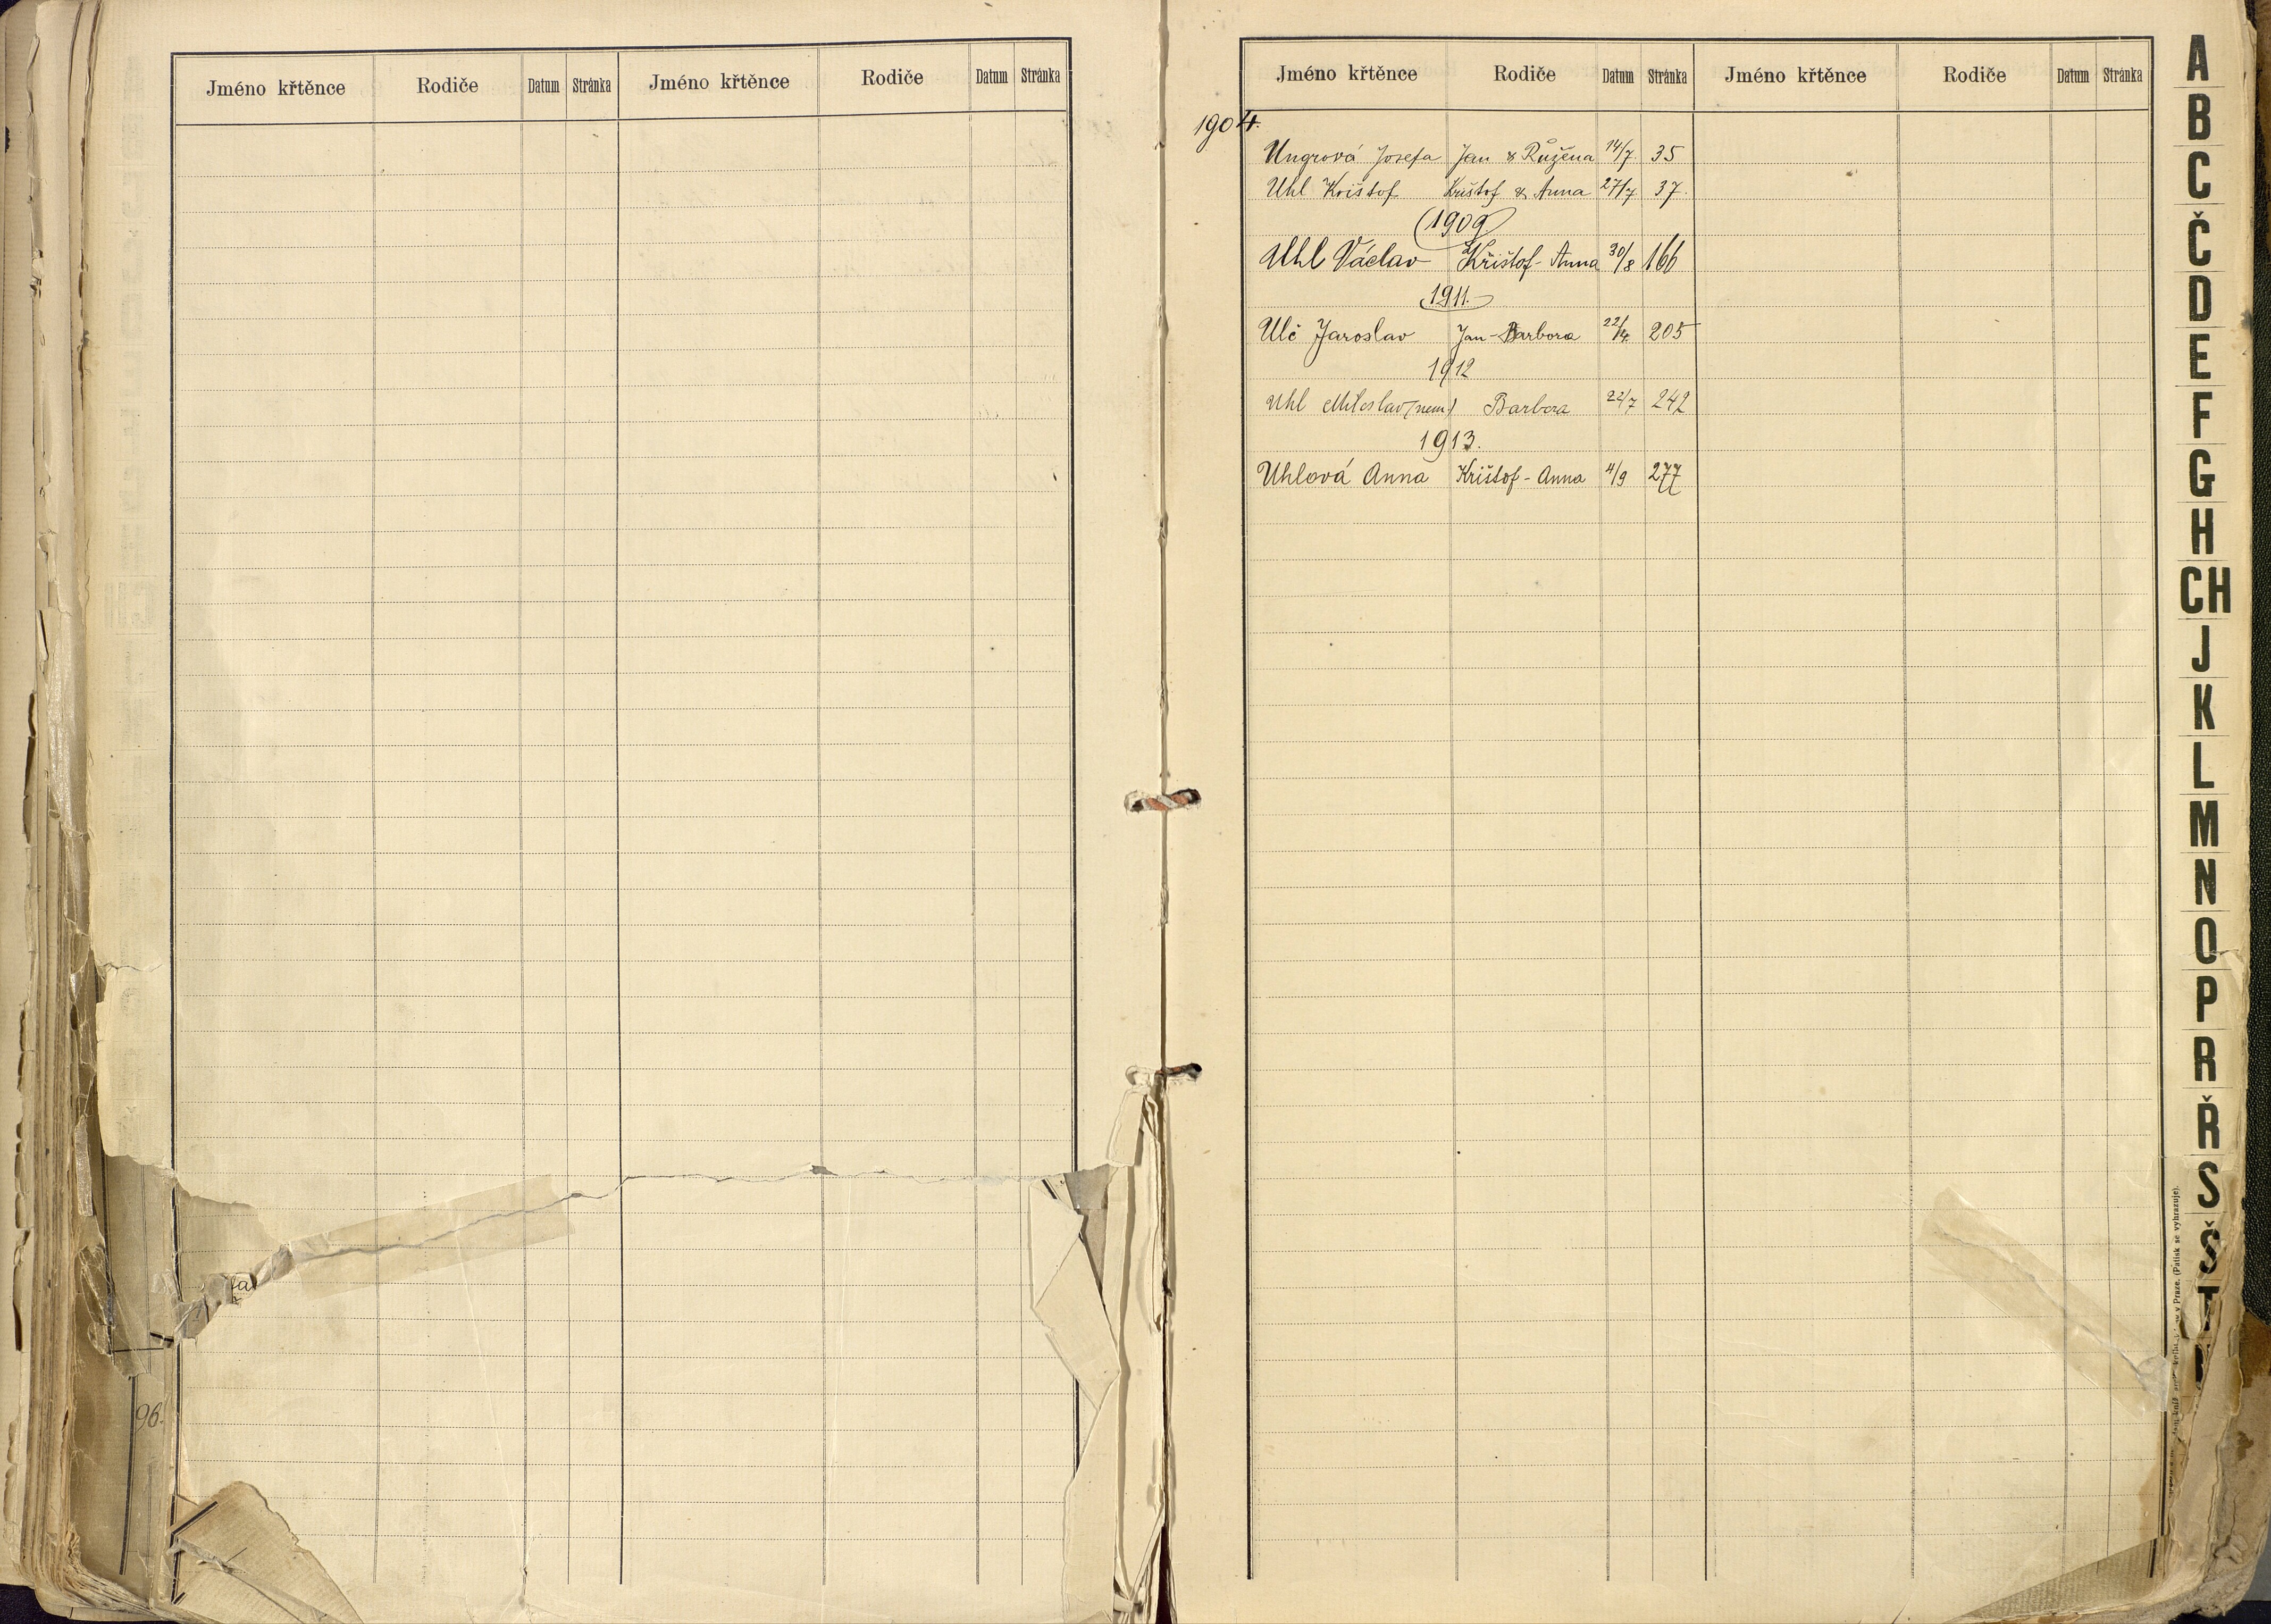 Jméno křtěnce Rodiče Datum Stránka Jméno křtěnce Rodiče Datum Stránka
96.
Jméno křtěnce Rodiče Datum Stránka Jméno křtěnce Rodiče Datum Stránka
1904.
Ungrová Josefa Jan & Růžena 14/7. 35
Uhl Krištof Krištof & Anna 27/7 37.
(1909)
Uhl Václav Křištof - Anna 30/8 166
1911.
Ulč Jaroslav Jan - Barbora 22/ 205
1912
Uhl Miloslav (nem.) Barbora 22/7 242
1913.
Uhlová Anna Krištof - Anna 4/9 277
A
B
C
Č
D
E
F
G
H
CH
J
K
L
M
N
O
P
R
Ř
S
Š
T
v Praze. (Patisk se vyhrazuje).